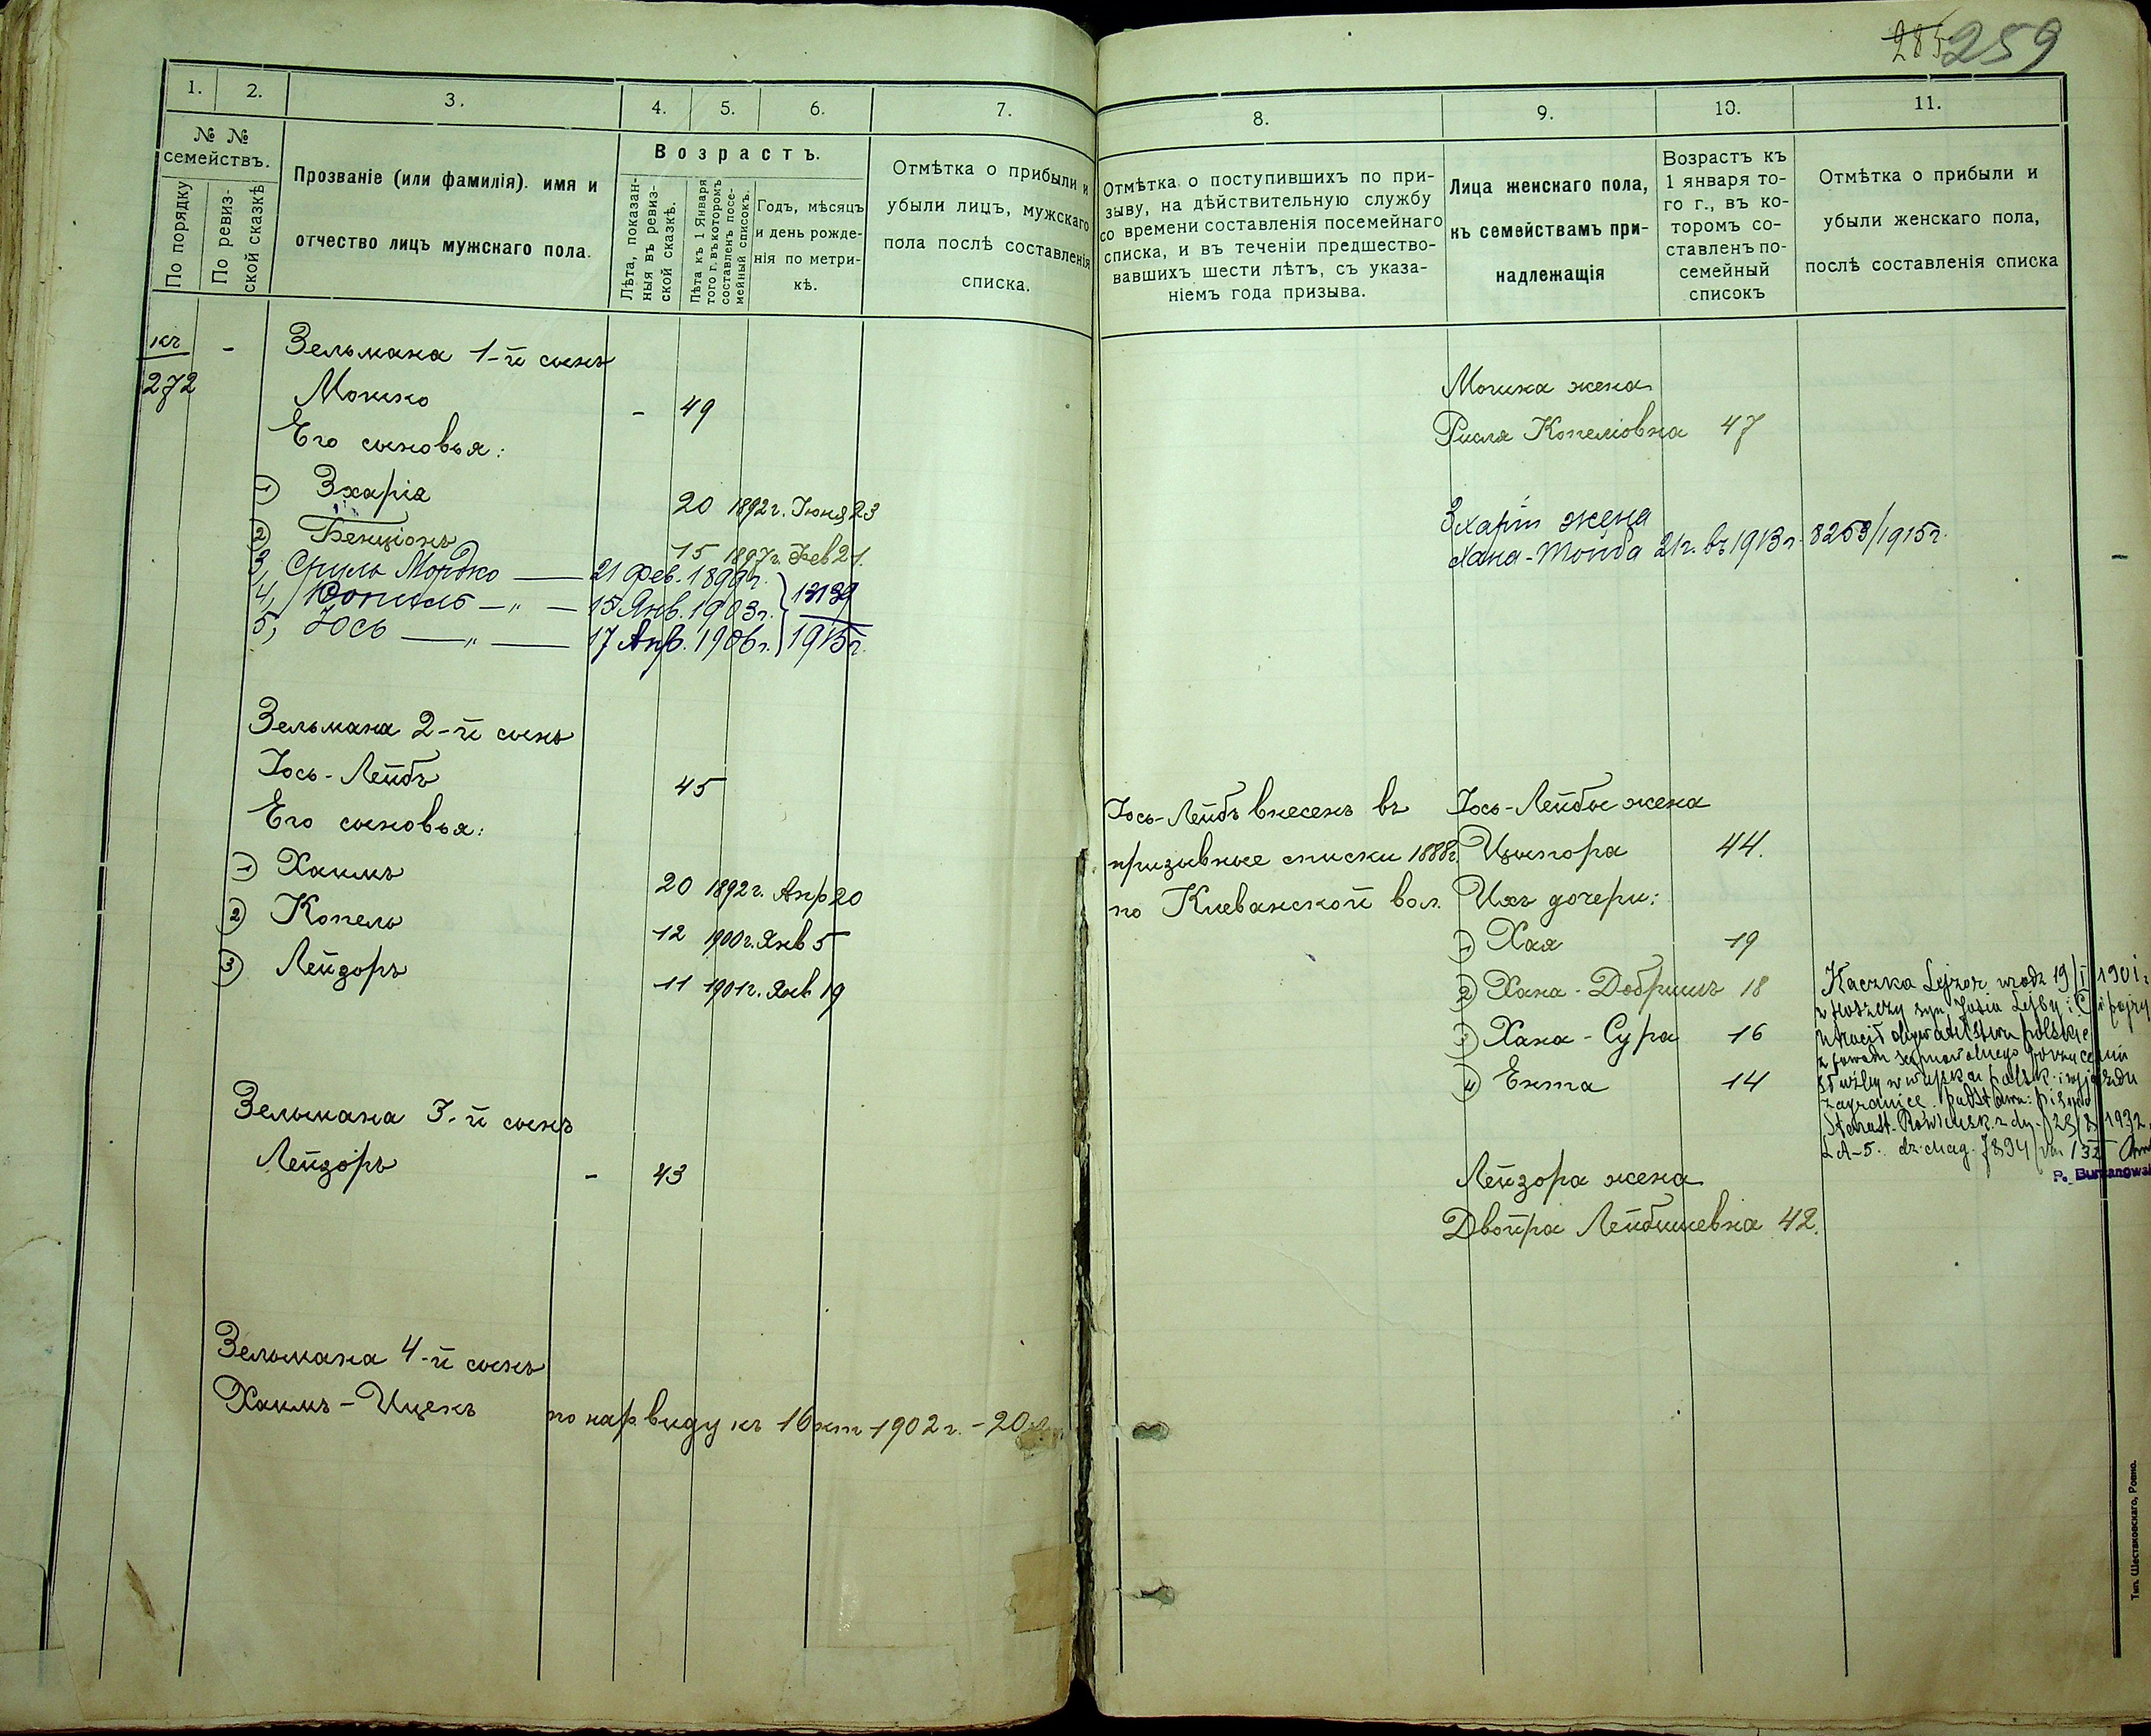 285 259
1. 2. 3. 4. 5. 6. 7.
№ №
семействъ.
По порядку
По ревиз-
ской сказкѣ
Прозваніе (или фамилія). имя и
отчество лицъ мужскаго пола.
Возрастъ.
Лѣта, показан-
ныя въ ревиз-
ской сказкѣ.
Лѣта къ 1 Января
того г. въ которомъ
составленъ посе-
мейный списокъ.
Годъ, мѣсяцъ
и день рожде-
нія по метри-
кѣ.
Отмѣтка о прибыли и
убыли лицъ, мужскаго
пола послѣ составленія
списка.
къ - Зельмана 1-й сынъ
272 Мошко - 49
Его сыновья:
1) Зхарія 20 1892 г. Іюня 23
2) Бенціонъ 15 1897 г. Фев 21.
3, Сруль Мордко — 21 Фев. 1899 г.
4, Копель — „ — 15 Янв. 1903 г. 13139
5, Іось — „ — 17 Апр. 1906 г. 1915 г.
Зельмана 2-й сынъ
Іось-Лейбъ 45
Его сыновья:
1) Хаимъ 20 1892 г. Апр 20
2) Копель 12 1900 г. Янв 5
3) Лейзоръ 11 1901 г. Янв 19
Зельмана 3-й сынъ
Лейзоръ - 43
Зельмана 4-й сынъ
Хаимъ-Ицекъ по нар виду къ 1 Окт 1902 г. - 20
8. 9. 10. 11.
Отмѣтка о поступившихъ по при-
зыву, на дѣйствительную службу
со времени составленія посемейнаго
списка, и въ теченіи предшество-
вавшихъ шести лѣтъ, съ указа-
ніемъ года призыва.
Лица женскаго пола,
къ семействамъ при-
надлежащія
Возрастъ къ
1 января то-
го г., въ ко-
торомъ со-
ставленъ по-
семейный
списокъ
Отмѣтка о прибыли и
убыли женскаго пола,
послѣ составленія списка
Мошка жена
Рисля Копеліовна 47
Зхаріи жена
Хана-Тойба 21 г. въ 1913 г. 8253/1915 г.
Іось-Лейбъ внесенъ въ
призывные списки 1888 г.
по Клеванской вол.
Іось-Лейбы жена
Ципора 44.
Ихъ дочери:
1) Хая 19
2) Хана-Добришъ 18
3) Хана-Сура 16
4) Ента 14
Kaczka Lejzor urodz 19/I 1901 r.
syn Josia Lejby i
utracił obywatelstwo polskie
z powodu samowolnego porzucenia
służby w wojsku polsk. i wyjazdu
zagranicę. podstawa: pismo
Starost. Rówieńsk. z dn. 28/8 1932
Лейзора жена
Двойра Лейбишевна 42.
Тип. Шестаковскаго, Ровно.